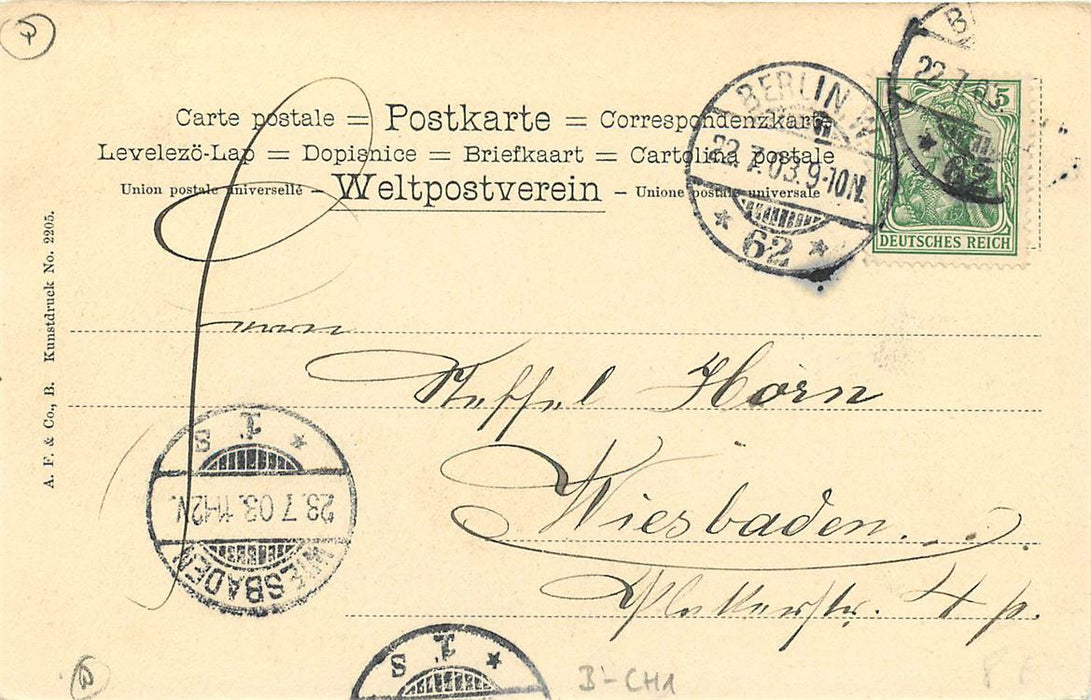 Carte postale = Postkarte = Correspondenzkarte
Levelezö-Lap = Dopisnice = Briefkaart = Cartolina postale
Union postale universelle – Weltpostverein – Unione postale universale
BERLIN W
22.7.03.9-10N.
* 62 *
B
22.7.03
* 62
5 5
DEUTSCHES REICH
A. F. & Co., B. Kunstdruck No. 2205.
Herrn
Steffel Horn
Wiesbaden
4 p.
WIESBADEN
23.7.03.11-12V.
* 1. S
* 1. S
B-CH1